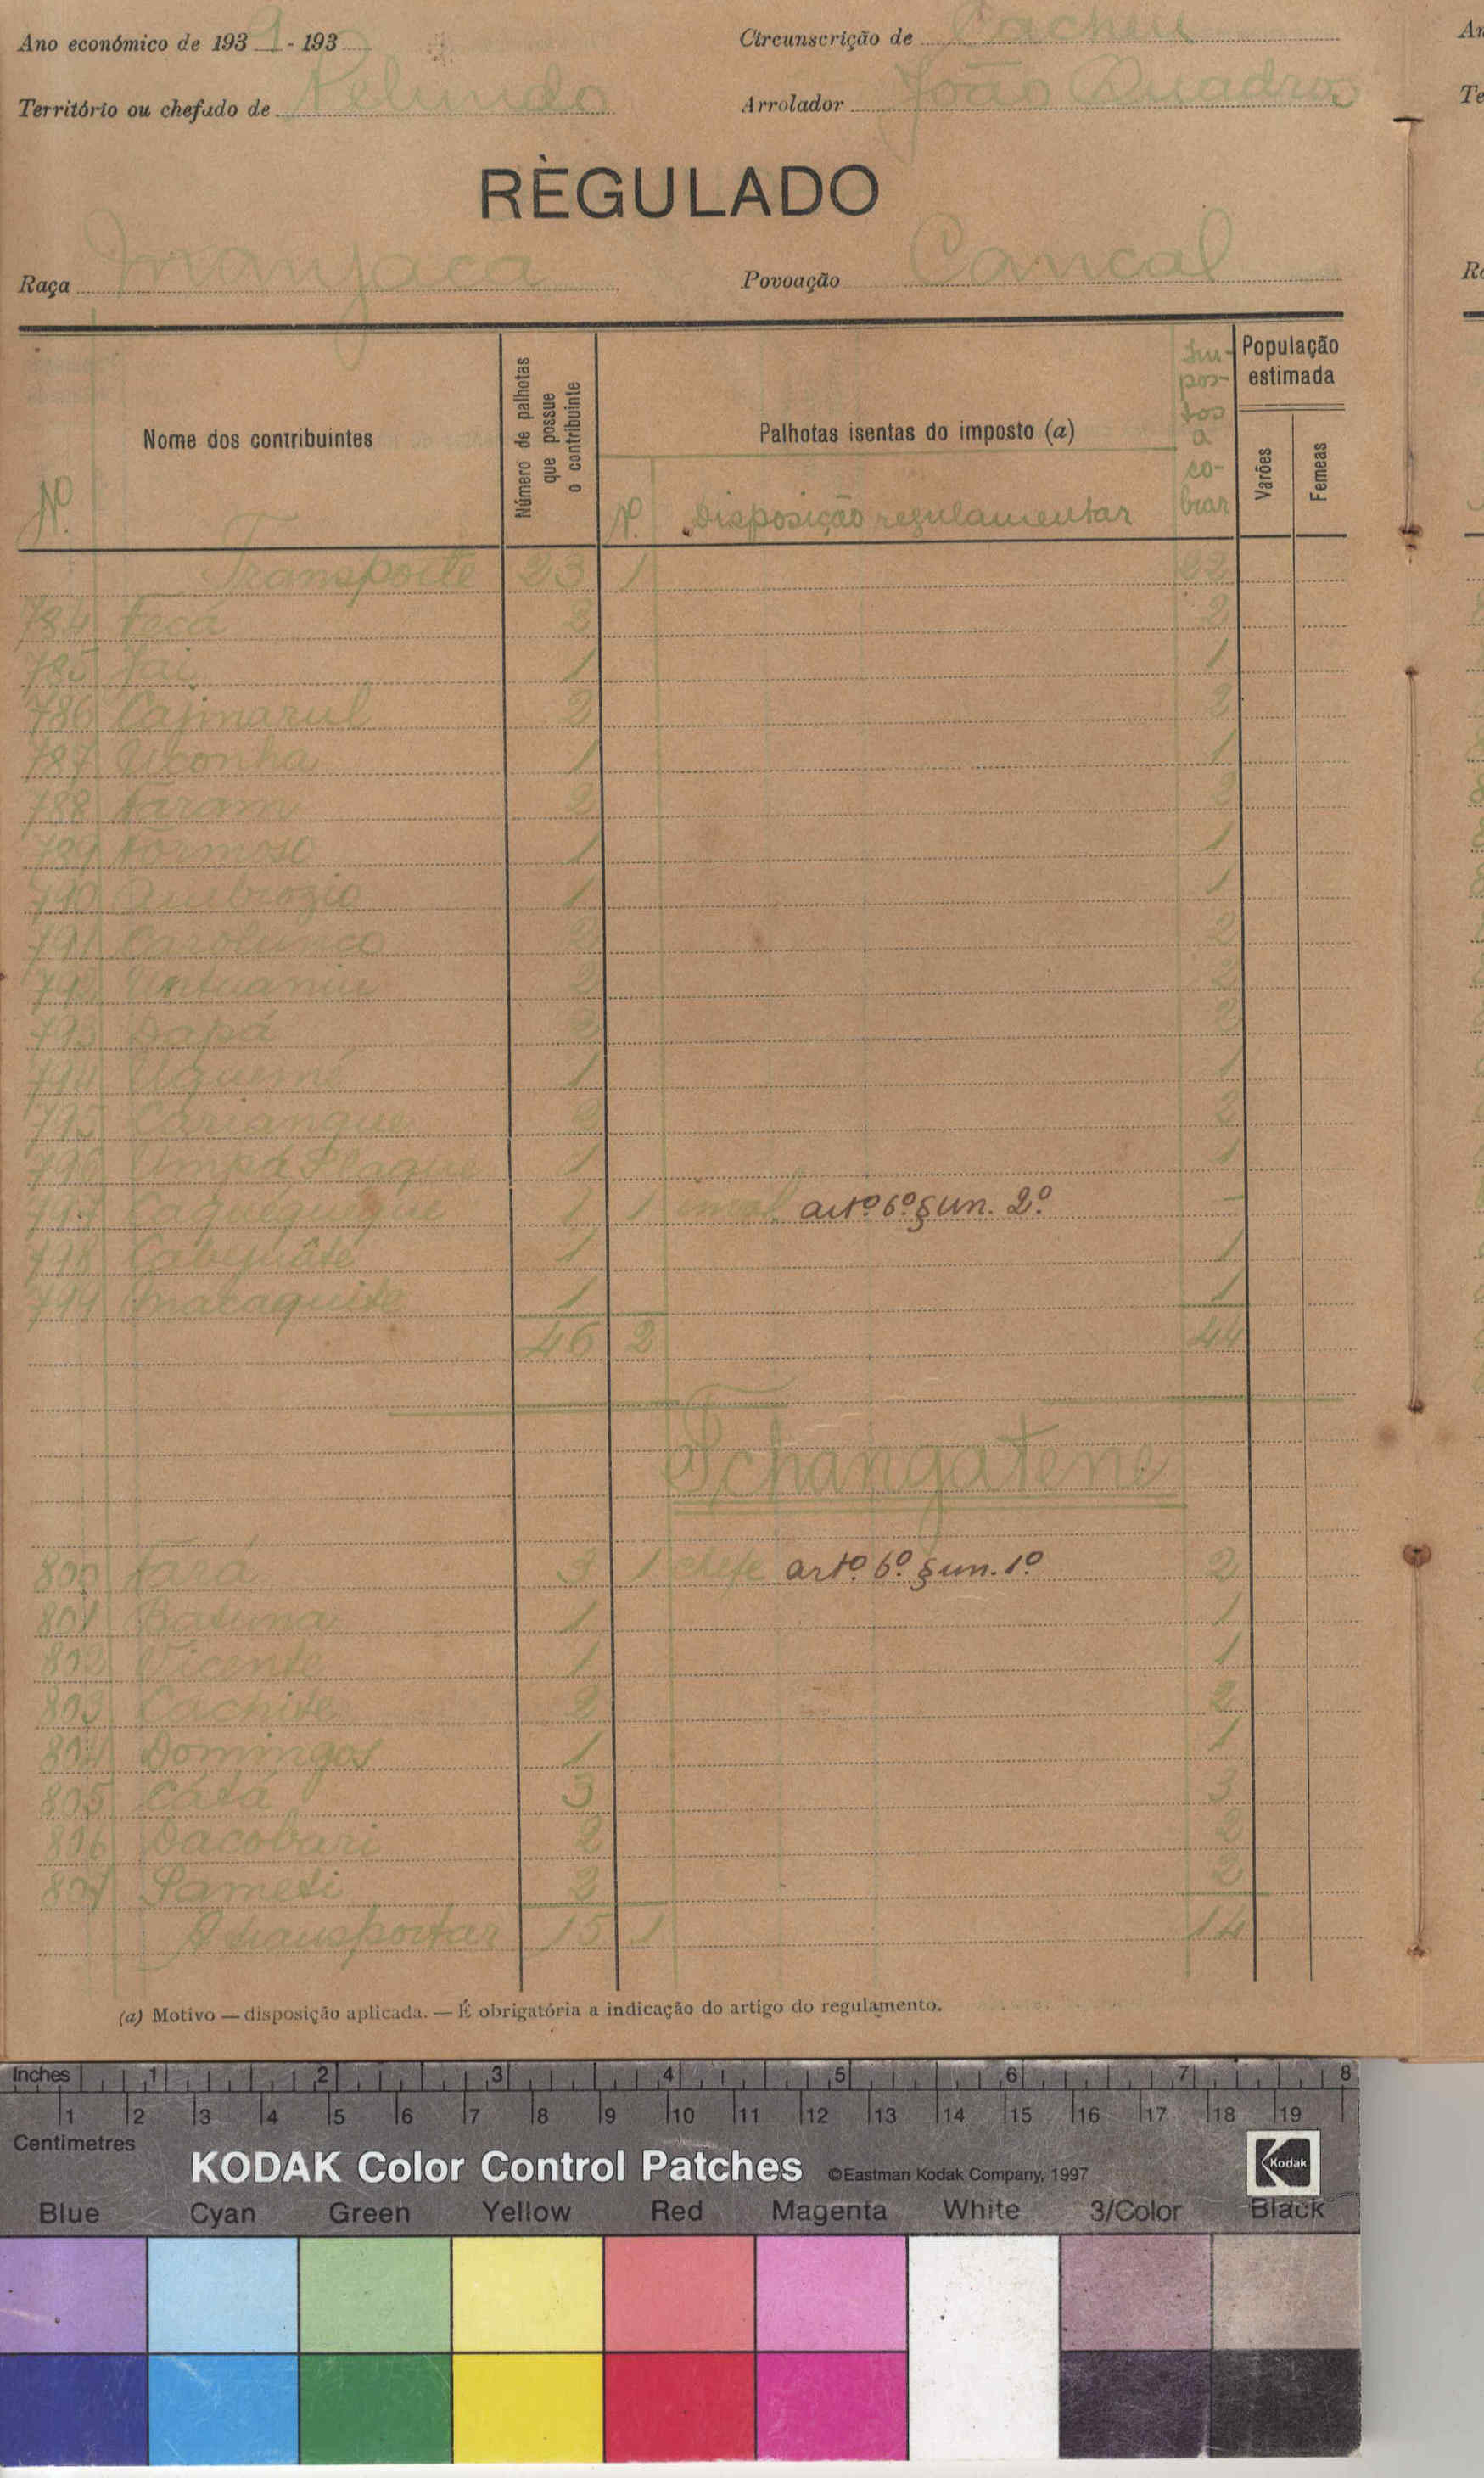 Ano económico de 193 - 193
Circunscrição de Cacheu
Território ou chefado de Pelundo
Arrolador João Quadros
RÈGULADO
Raça Manjaca
Povoação Cancal
N.º
Nome dos contribuintes
Número de palhotas que possue o contribuinte
Palhotas isentas do imposto (a)
N.º Disposição regulamentar
Impostos a cobrar
População estimada
Varões
Femeas
Transporte 23 1 22
784 2 2
785 1 1
786 2 2
787 1 1
788 Naram 2 2
789 Formoso 1 1
790 Ambrozio 1 1
791 2 2
792 2 2
793 Dapá 2 2
794 1 1
795 Cariangue 2 2
796 1 1
797 1 1 art.º 6.º § un. 2.º -
798 1 1
799 Macaquite 1 1
46 2 44
Tchangatene
800 3 1 chefe art.º 6.º § un. 1.º 2
801 Batuna 1 1
802 Vicente 1 1
803 Cachite 2 2
804 Domingos 1 1
805 Cátá 3 3
806 Dacobari 2 2
807 Sameti 2 2
A transportar 15 1 14
(a) Motivo — disposição aplicada. — É obrigatória a indicação do artigo do regulamento.
Inches 1 2 3 4 5 6 7 8
1 2 3 4 5 6 7 8 9 10 11 12 13 14 15 16 17 18 19
Centimetres
KODAK Color Control Patches ©Eastman Kodak Company, 1997 Kodak
Blue Cyan Green Yellow Red Magenta White 3/Color Black